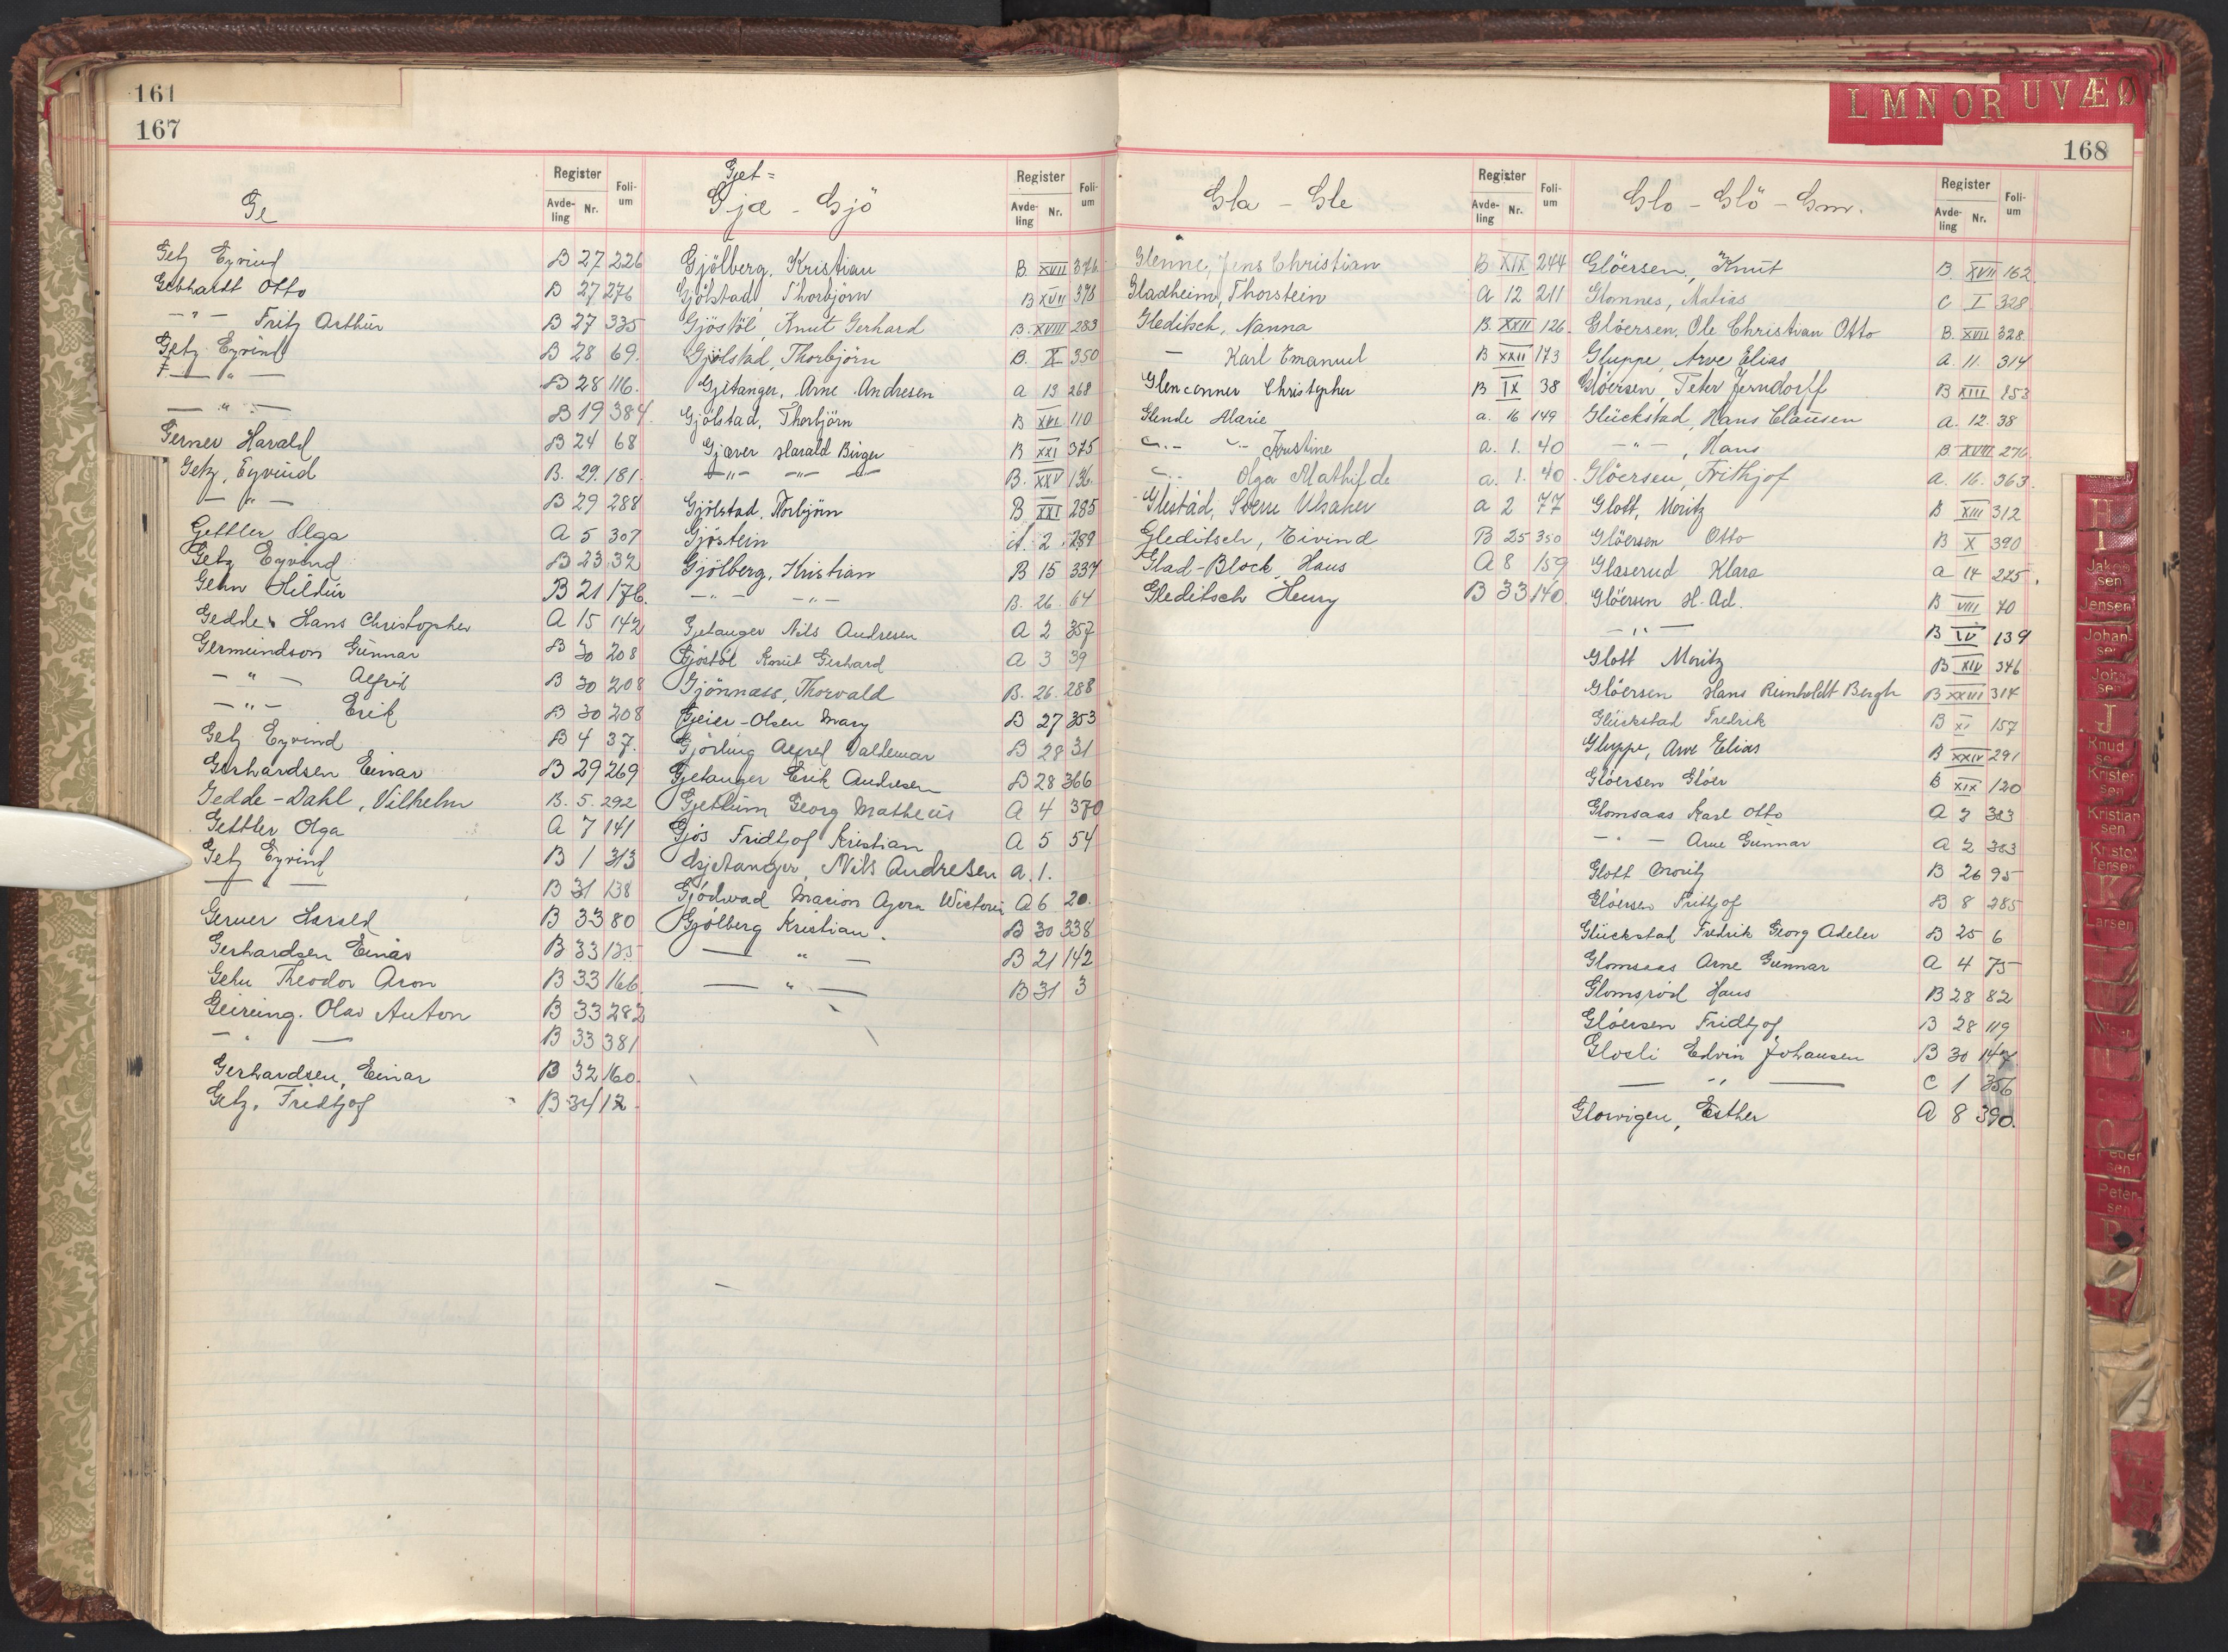 161
167
Ge
Register
Avde-ling Nr.
Foli-um
Getz Eyvind B 27 226
Gebhardt Otto B 27 276
— " — Fritz Arthur B 27 335
Getz Eyvind B 28 69.
— " — B 28 116.
— " — B 19 384.
Gerner Harald B 24 68
Getz, Eyvind B. 29. 181.
— " — B 29 288
Gettler Olga A 5 307
Getz Eyvind B 23 32
Gehn Hildur B 21 176.
Gedde, Hans Christopher A 15 142
Germundson Gunnar B 30 208
— " — Alfred B 30 208
— " — Erik B 30 208
Getz Eyvind B 4 37.
Gerhardsen Einar B 29 269
Gedde-Dahl, Vilhelm B. 5. 292
Gettler Olga A 7 141
Getz Eyvind B 1 313
— — B 31 138
Gerner Harald B 33 80
Gerhardsen Einar B 33 135
Gehn Theodor Aron B 33 166
Geireing. Olav Anton B 33 282
— " — B 33 381
Gerhardsen, Einar B 32 160.
Getz, Fridtjof B 34 12.
Gjet=
Gjæ - Gjö
Register
Avde-ling Nr.
Foli-um
Gjölberg, Kristian B XVII 376.
Gjölstad, Thorbjörn B XVII 378
Gjöstöl, Knut Gerhard B. XVIII 283
Gjölstad, Thorbjörn B. X 350
Gjetanger, Arne Andresen a 13 268
Gjölstad, Thorbjörn B XVI 110
Gjæver Harald Birger B XXI 375
— " — — " — B. XXV 136.
Gjölstad, Torbjörn B XXI 285
Gjöstein A. 2. 289
Gjölberg, Kristian B 15 337
— " — — " — B. 26. 64
Gjetanger Nils Andresen A 2 357
Gjöstöl Knut Gerhard A 3 39
Gjönnæss, Thorvald B. 26. 288
Gjeier-Olsen Mary B 27 353
Gjörling Alfred Valdemar B 28 31
Gjetanger Erik Andresen B 28 366
Gjetlum Georg Matheus A 4 370
Gjös Fridtjof Kristian A 5 54
Gjetanger, Nils Andresen a. 1.
Gjödwad Marion Agora A 6 20.
Gjölberg Kristian. B 30 338
— " — B 21 142
— " — B 31 3
Gla - Gle
Register
Avde-ling Nr.
Foli-um
Glenne, Jens Christian B XIX 244
Gladheim, Thorstein a 12 211
Gleditsch, Nanna B. XXII 126.
— Karl Emanuel B XXII 173
Glenconner Christopher B IX 38
Glende Marie a. 16 149
— " — — " — Justine a. 1. 40
— " — Olga Mathilde a. 1. 40.
Glestad, Sverre Ulsaker a 2 77
Gleditsch, Eivind B 25 350
Glad-Block Hans A 8 159
Gleditsch Henry B 33 140.
L M N O R U V Æ Ø
168
Glo - Glö - Gm.
Register
Avde-ling Nr.
Foli-um
Glöersen, Knut B. XVII 162
Glomnes, Matias C I 328
Glöersen, Ole Christian Otto B. XVII 328
Gluppe, Arve Elias a. 11. 314
Glöersen, Peter Jerndorff B XIII 153
Glückstad, Hans Clausen a. 12. 38
— " —, Hans B XVIII 276
Glöersen, Frithjof a. 16. 363.
Glott, Moritz B XIII 312
Glöersen Otto B X 390
Glaserud Klara a 14 225.
Glöersen H. Ad. B VIII 40
— " — B IV 139
Glott Moritz B XIV 346
Glöersen Hans Reinholdt Bergh B XXIII 314
Glückstad Fredrik B XI 157
Gluppe, Arve Elias B XXIV 291
Glöersen Glöer B XIX 120
Glomsaas Karl Otto A 2 383
— " — Arne Gunnar A 2 383
Glott Moritz B 26 95
Glöersen Frithjof B 8 285
Glückstad Fredrik Georg Adeler B 25 6
Glomsaas Arne Gunnar A 4 75
Glomsröd Hans B 28 82
Glöersen Fridtjof B 28 119
Glosli Edvin Johansen B 30 147
— " — C 1 356
Glowigen, Esther A 8 390.
H
I
Jakob-sen
Jensen
Johan-sen
John-sen
J
Knud-sen
Krister-sen
Kristian-sen
Kristof-fersen
K
Larsen
N
O
Peder-sen
Peter-sen
P